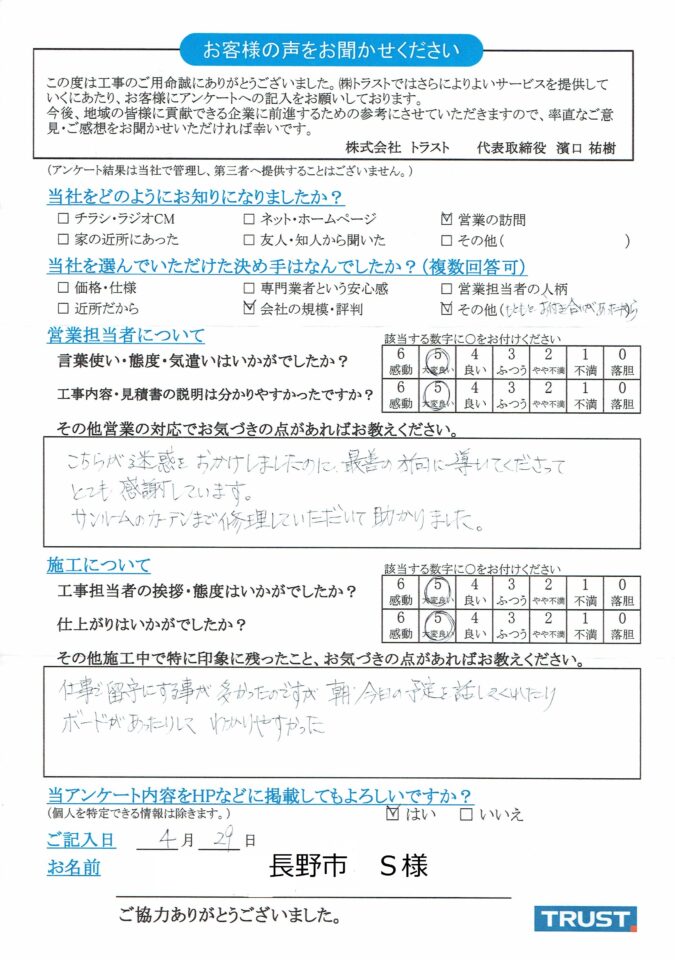 お客様の声をお聞かせください
この度は工事のご用命誠にありがとうございました。㈱トラストではさらによりよいサービスを提供して
いくにあたり、お客様にアンケートへの記入をお願いしております。
今後、地域の皆様に貢献できる企業に前進するための参考にさせていただきますので、率直なご意
見・ご感想をお聞かせいただければ幸いです。
株式会社 トラスト 代表取締役 濱口 祐樹
(アンケート結果は当社で管理し、第三者へ提供することはございません。)
当社をどのようにお知りになりましたか?
□ チラシ・ラジオCM □ ネット・ホームページ ☑ 営業の訪問
□ 家の近所にあった □ 友人・知人から聞いた □ その他( )
当社を選んでいただけた決め手はなんでしたか?(複数回答可)
□ 価格・仕様 □ 専門業者という安心感 □ 営業担当者の人柄
□ 近所だから ☑ 会社の規模・評判 ☑ その他(もともとお付き合いがあったから
営業担当者について 該当する数字に○をお付けください
言葉使い・態度・気遣いはいかがでしたか? 6 5 4 3 2 1 0
感動 大変良い 良い ふつう やや不満 不満 落胆
工事内容・見積書の説明は分かりやすかったですか? 6 5 4 3 2 1 0
感動 大変良い 良い ふつう やや不満 不満 落胆
その他営業の対応でお気づきの点があればお教えください。
こちらが迷惑をおかけしましたのに、最善の方向に導いてくださって
とても感謝しています。
サンルームのカーテンまで修理していただいて助かりました。
施工について 該当する数字に○をお付けください
工事担当者の挨拶・態度はいかがでしたか? 6 5 4 3 2 1 0
感動 大変良い 良い ふつう やや不満 不満 落胆
仕上がりはいかがでしたか? 6 5 4 3 2 1 0
感動 大変良い 良い ふつう やや不満 不満 落胆
その他施工中で特に印象に残ったこと、お気づきの点があればお教えください。
仕事で留守にする事が多かったのですが 朝、今日の予定を話してくれたり
ボードがあったりして わかりやすかった
当アンケート内容をHPなどに掲載してもよろしいですか?
(個人を特定できる情報は除きます。) ☑ はい □ いいえ
ご記入日 4月29日
お名前 長野市 S様
ご協力ありがとうございました。
TRUST